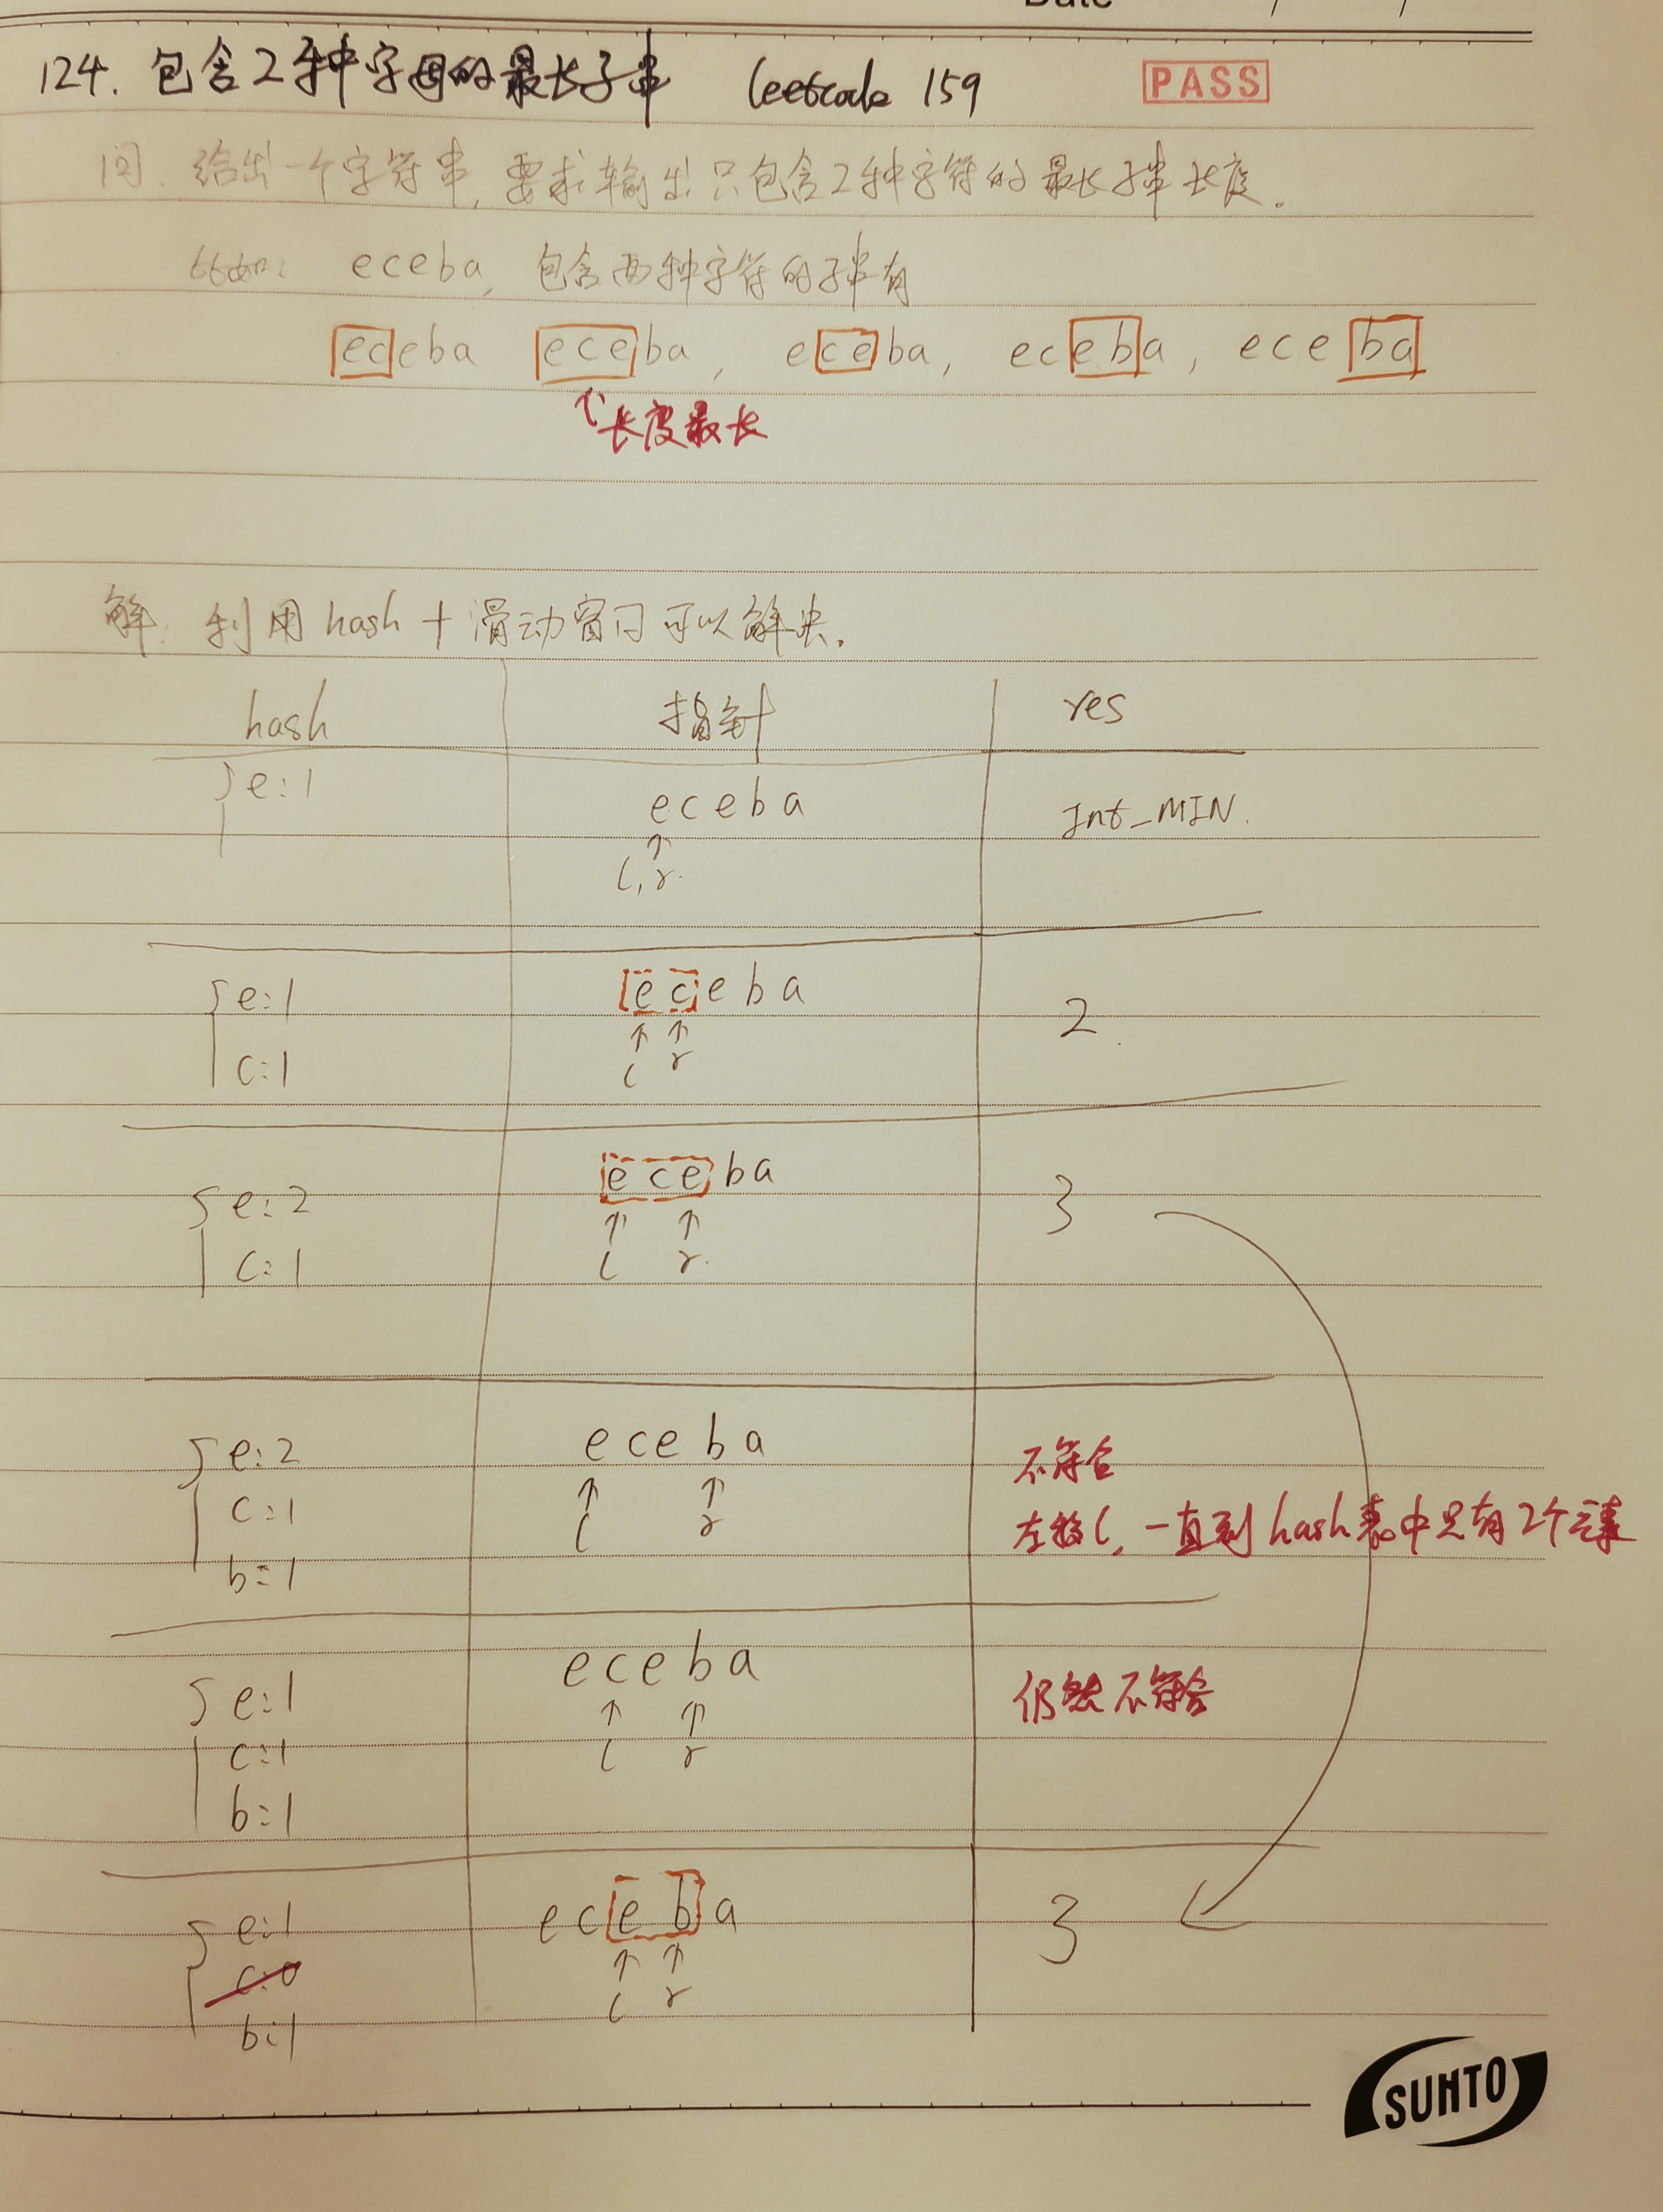 Date / /
124. 包含2种字母的最长子串 leetcode 159 PASS
问. 给出一个字符串, 要求输出只包含2种字符的最长子串长度.
比如: eceba, 包含两种字符的子串有
eceba eceba, eceba, eceba, eceba
↑长度最长
解: 利用hash+滑动窗口可以解决.
hash 指针 res
e:1 eceba Int_MIN.
↑
l,r.
e:1 eceba 2.
c:1 ↑ ↑
l r
e:2 eceba 3
c:1 ↑ ↑
l r.
e:2 eceba 不符合
c:1 ↑ ↑ 左移l, 一直到hash表中只有2个元素
b:1 l r
e:1 eceba 仍然不符合
c:1 ↑ ↑
b:1 l r
e:1 eceba 3
c:0 ↑ ↑
b:1 l r
SUNTO